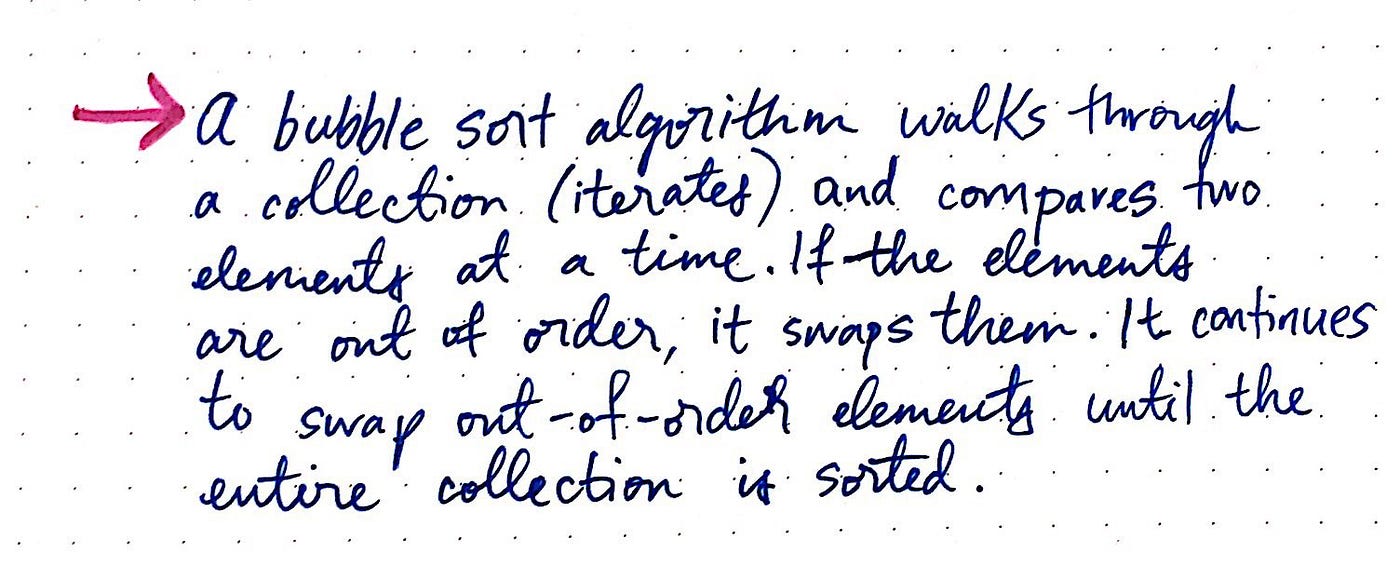 → A bubble sort algorithm walks through
a collection (iterates) and compares two
elements at a time. If the elements
are out of order, it swaps them. It continues
to swap out-of-order elements until the
entire collection is sorted.